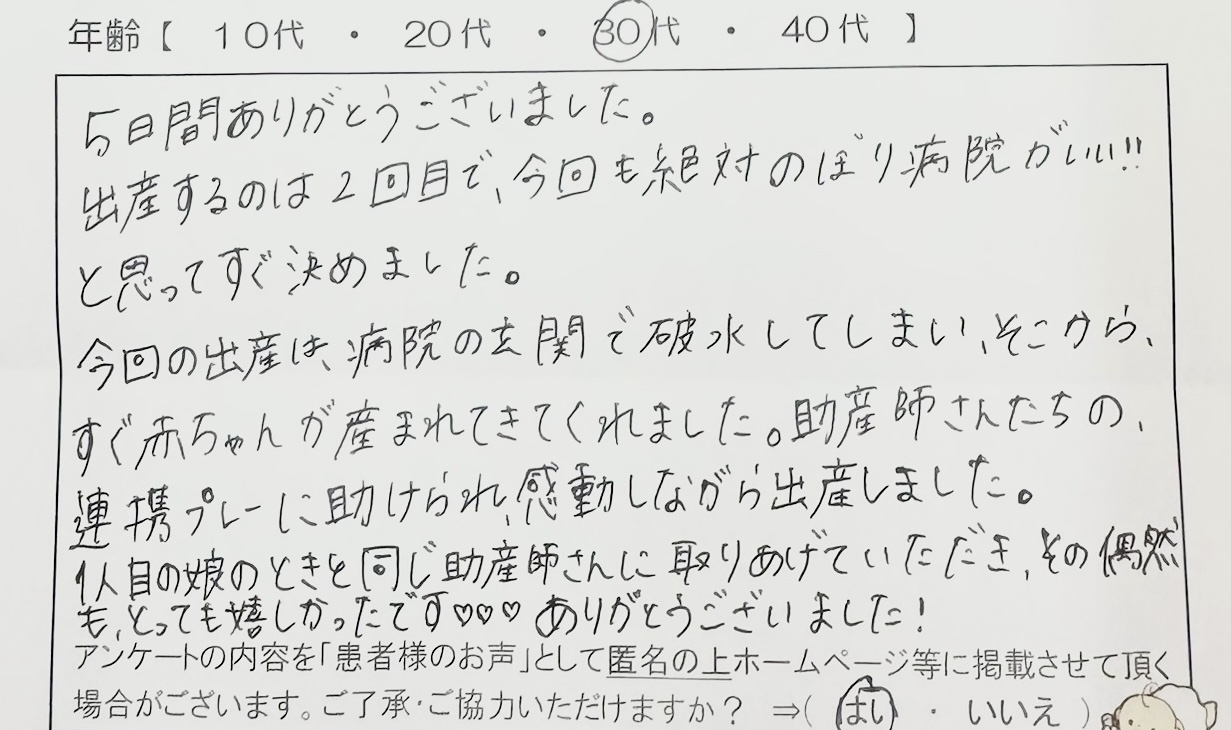 年齢【 10代 ・ 20代 ・ 30代 ・ 40代 】
5日間ありがとうございました。
出産するのは2回目で、今回も絶対のぼり病院がいい!!
と思ってすぐ決めました。
今回の出産は、病院の玄関で破水してしまい、そこから、
すぐ赤ちゃんが産まれてきてくれました。助産師さんたちの、
連携プレーに助けられ、感動しながら出産しました。
1人目の娘のときと同じ助産師さんに取りあげていただき、その偶然
も、とっても嬉しかったです♡♡♡ ありがとうございました!
アンケートの内容を「患者様のお声」として匿名の上ホームページ等に掲載させて頂く
場合がございます。ご了承・ご協力いただけますか? ⇒( はい ・ いいえ )